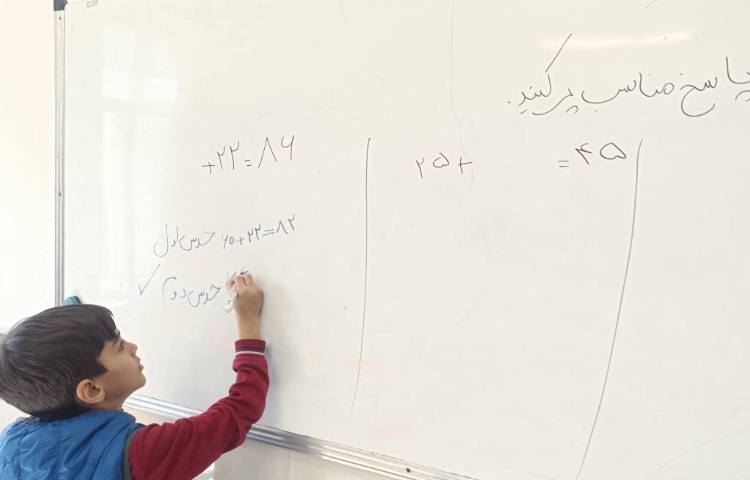 پاسخ مناسب پر کنید.
۲۵+ =۴۵
+۲۲=۸۶
حدس اول ۶۰+۲۲=۸۲
حدس دوم